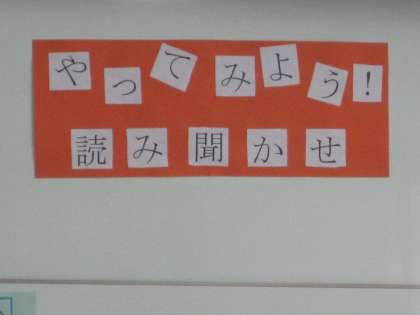 やってみよう!
読み聞かせ